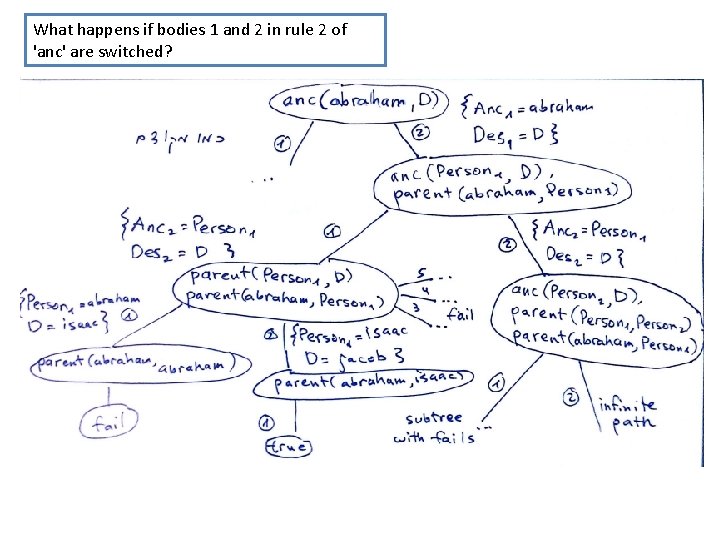 What happens if bodies 1 and 2 in rule 2 of
'anc' are switched?
anc(abraham, D)
{Anc₁ = abraham
Des₁ = D}
כמו מקודם
①
②
...
anc(Person₁, D),
parent(abraham, Person₁)
{Anc₂ = Person₁
Des₂ = D }
①
②
{Anc₂ = Person₁
Des₂ = D}
parent(Person₁, D)
parent(abraham, Person₁)
5 ...
4 ...
3 ...
fail
anc(Person₂, D),
parent(Person₁, Person₂)
parent(abraham, Person₁)
{Person₁ = abraham
D = isaac}
①
②
{Person₁ = isaac
D = jacob}
parent(abraham, abraham)
parent(abraham, isaac)
①
②
fail
①
true
subtree
with fails ...
infinite
path